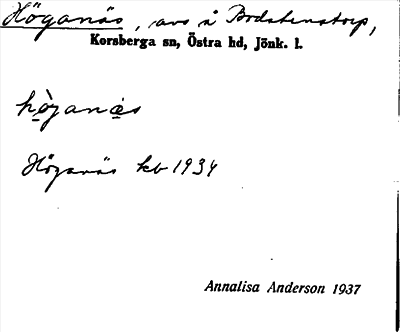 Höganäs, avs å Bodstenstorp,
Korsberga sn, Östra hd, Jönk. l.
hö̀ganäs
Höganäs kb 1934
Annalisa Anderson 1937